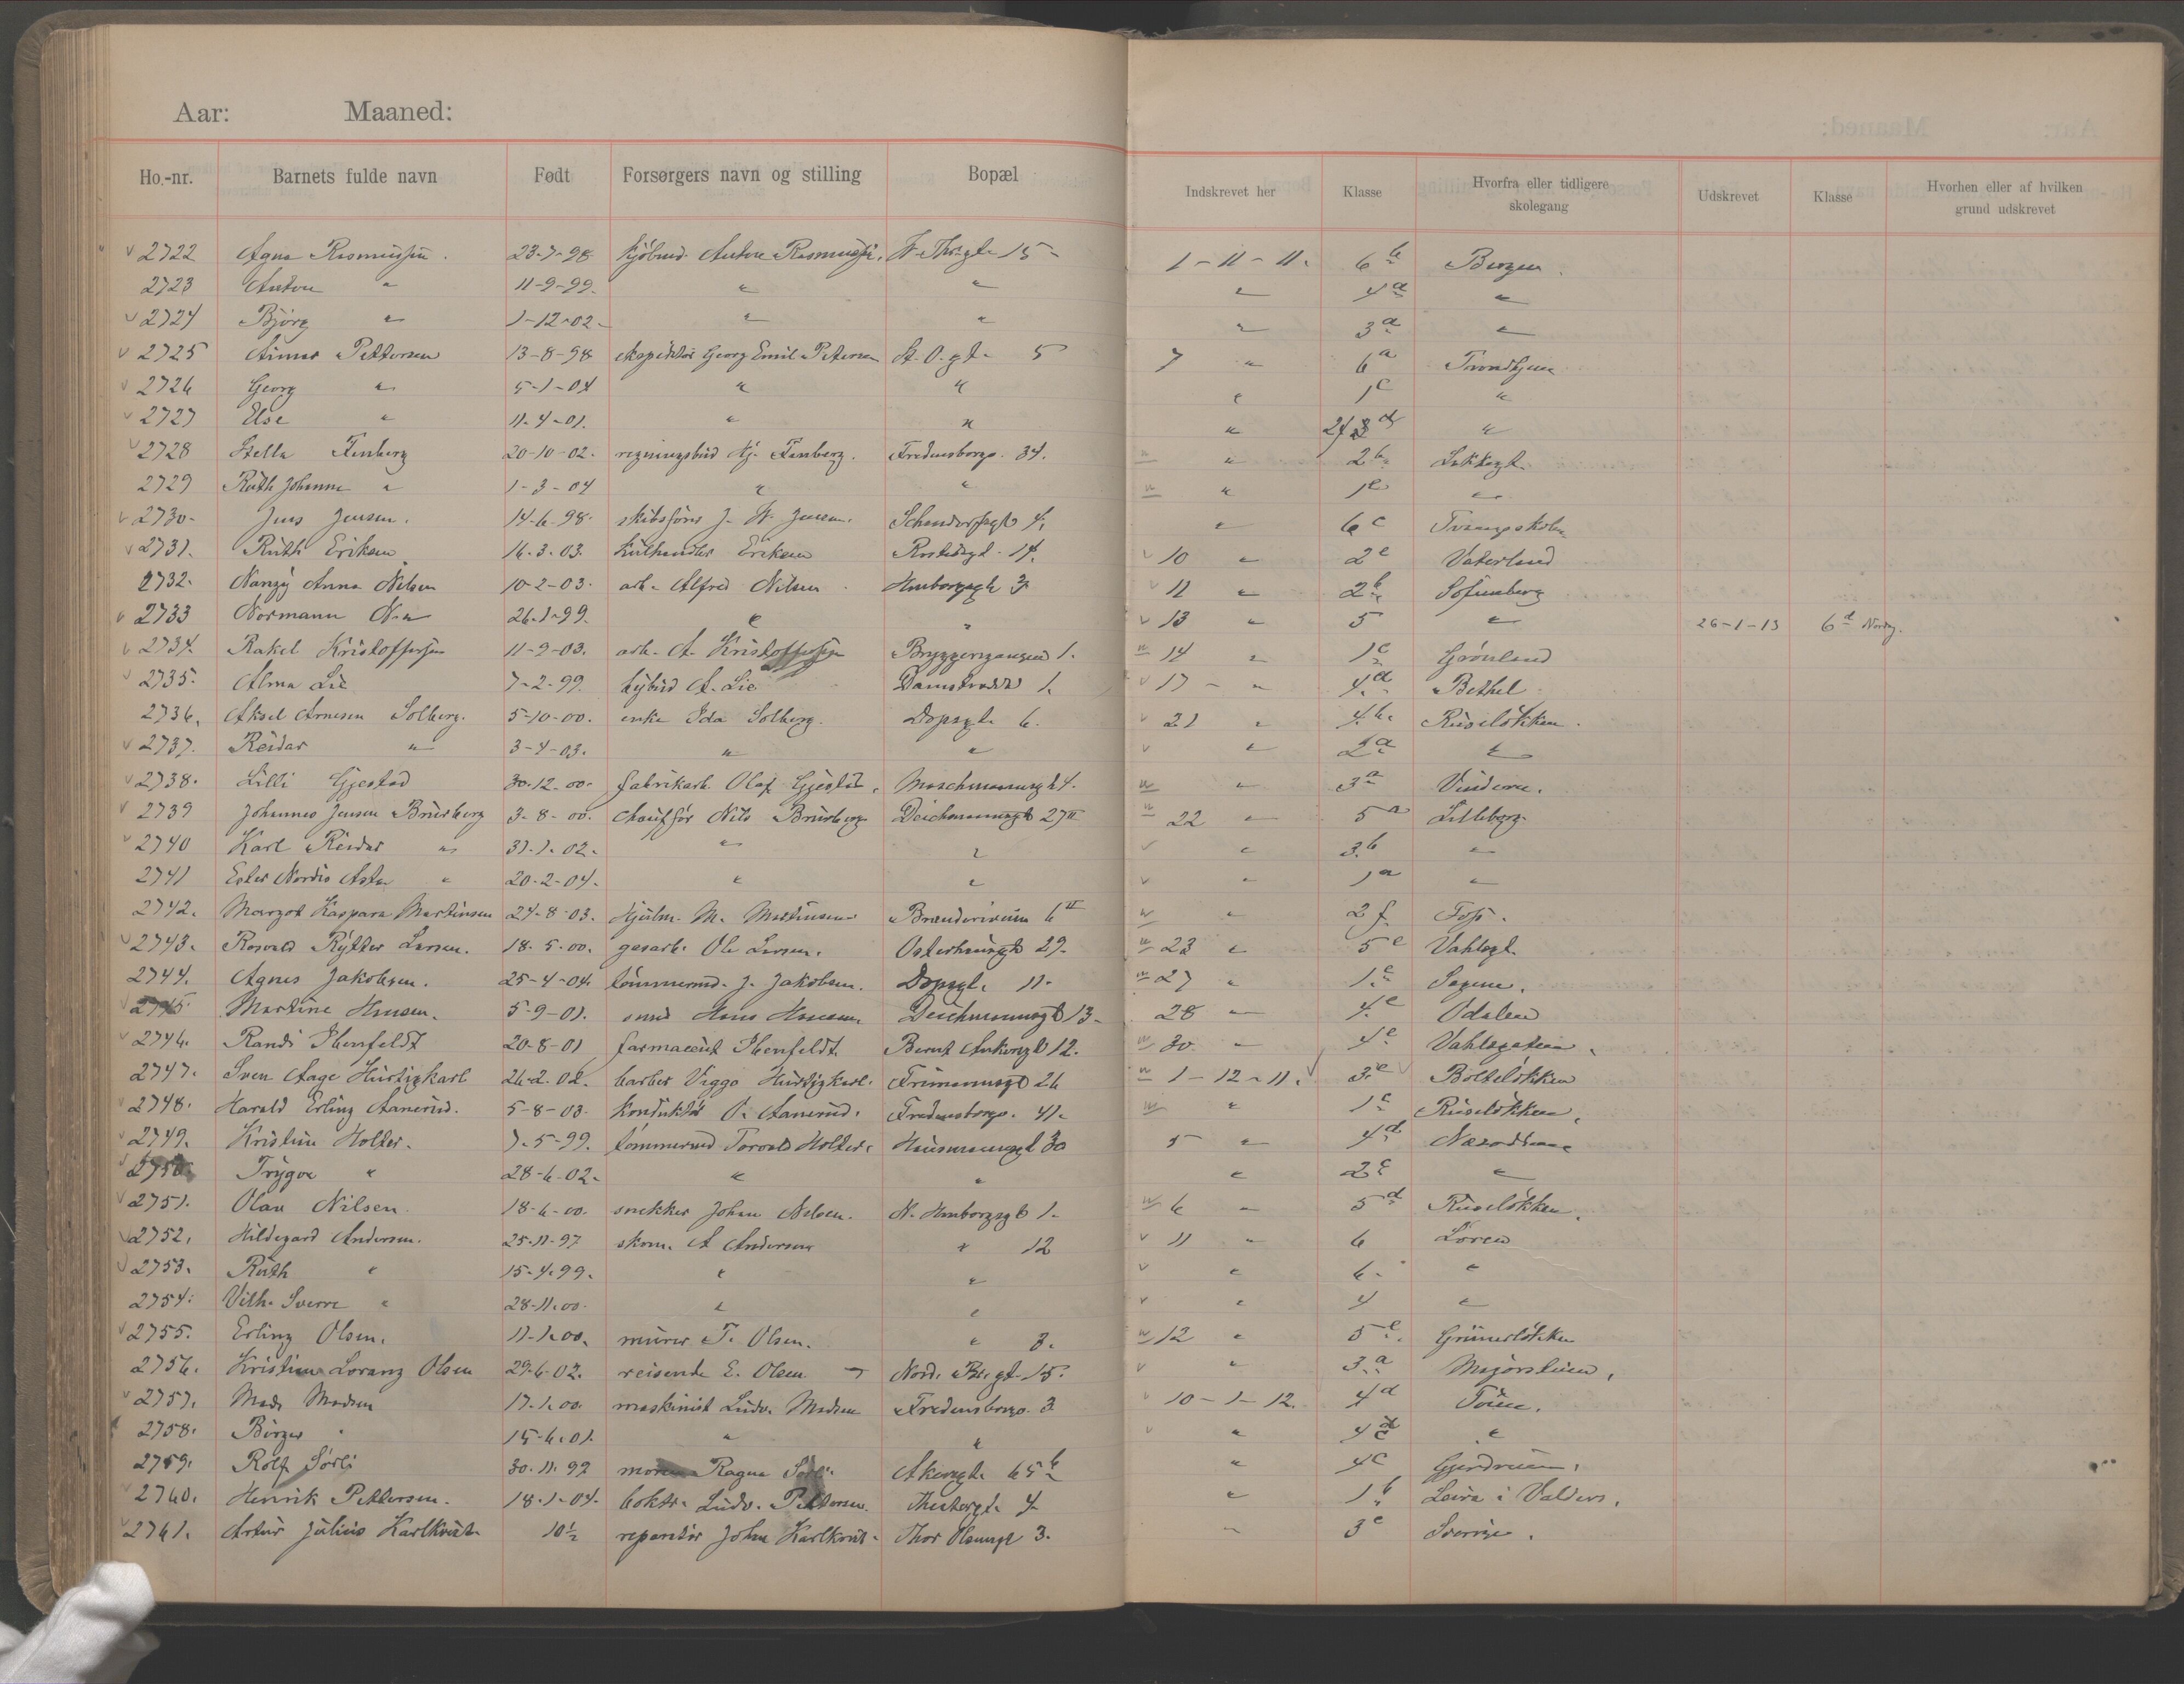 Aar: Maaned:
Ho.-nr. Barnets fulde navn Født Forsørgers navn og stilling Bopæl Indskrevet her Klasse Hvorfra eller tidligere skolegang Udskrevet Klasse Hvorhen eller af hvilken grund udskrevet
2722 Agna Rasmussen. 23-7-98 kjøbmd. Anton Rasmussen. 15- 1-11-11. 6b Bergen.
2723 Anton " 11-9-99. " " " 4a "
2724 Bjørg " 1-12-02- " " " 3a "
2725 Pettersen 13-8-98 ekspeditør Georg Emil Petersen St. O. gt. 5 7 " 6a Trondhjem
2726 Georg " 5-1-04 " " " 1c "
2727 Else " 11-4-01. " " " "
2728 Stella Finberg 20-10-02. regningsbud Hj. Finberg. Fredensborgv. 34. " " 2b Lakkegt.
2729 Ruth Johanne " 1-3-04 " " " " 1e "
2730- Jens Jensen. 14-6-98. skibsfører J. W. Jensen. 4. " 6c Tvangsskolen
2731. Ruth Eriksen 16-3-03. kulhandler Eriksen Rostedsgt. 14. 10 " 2e Vaterland
2732. Nanzy Anna Nilsen 10-2-03. arb. Alfred Nilsen Hmborggt. 3 11 " 2b Sofienberg
2733 Normann N. " 26-1-99. " " 13 " 5 " 26-1-13 6d Nordg.
2734. Rakel Kristoffersen 11-9-03. arb. A. Kristoffersen Bryggergangen 1. " 14 " 1c Grønland
2735. Alma Lie 7-2-99. bybud A. Lie Damstrædet 1. 17 - " 4d Bethel
2736. Aksel Arnesen Solberg. 5-10-00. enke Ida Solberg. Dopsgt. 6. 21 " 4b. Ruseløkken.
2737. Reidar " 3-4-03. " " " 2a "
2738. Lilli Gjestad 30-12-00. fabrikarb. Olaf Gjestad. 4. " " 3a Vinderen.
2739 Johannes Jensen Brurberg 3-8-00. chauffør Nils Brurberg Deichmannsgt 27 II " 22 " 5a Lilleborg.
2740 Karl Reidar " 31-1-02. " " " 3b "
2741 Ester Nordis Asta " 20-2-04. " " " 1a "
2742. Margot Kaspara Martinsen 24-8-03. Hjulm. M. Martinsen 6 II " " 2f Foss.
2743. Rosvald Rytter Larsen. 18-5-00. gasarb. Ole Larsen. Osterhausgt 29. " 23 " 5e Vahlsgt.
2744. Agnes Jakobsen. 25-4-04. tømmermd. J. Jakobsen. Dopsgt. 11. " 27 " 1c Sagene.
2745 Martine Hansen. 5-9-01. smed Hans Hansen Deichmannsgt 13. 28 " 4e Odalen
2746. Randi Ihlenfeldt 20-8-01 farmaceut Ihlenfeldt. Bernt Ankersgt 12. " 30 " 4e Vahlsgaten.
2747. Sven Aage Hurtigkarl 26-2-02. barber Viggo Hurtigkarl. Frimannsgt 26 " 1-12-11. 3e Bolteløkken
2748. Harald Erling Aanerud. 5-8-03. konduktør O. Aanerud. Fredensborgv. 41. " " 1c Ruseløkken.
2749. Kristine Holter. 7-5-99. tømmermd Torvald Holter. Hausmannsgt 30 5 " 4d Næsodden
2750. Trygve " 28-6-02. " " " 2c "
2751. Olav Nilsen. 18-6-00. snekker Johan Nilsen. N. Hmborggt 1. " 6 " 5d Ruseløkken.
2752. Hildegard Andersen. 25-11-97 skom. A Andersen " 12 11 " 6 Løren
2753. Ruth " 15-4-99. " " " 6. "
2754. Vilh. Sverre " 28-11-00. " " " 4 "
2755. Erling Olsen. 11-1-00. murer T. Olsen. " 3. " 12 " 5e. Grünerløkken
2756. Kristian Loranz Olsen 29-6-02. reisende E. Olsen Nord. Br. gt. 15. " 3.a Majorstuen.
2757. Mads Madsen 17-1-00. maskinist Ludv. Madsen Fredensborgv. 3 10-1-12. 4d Tøien.
2758. Birger " 15-6-01. " " " "
2759. Rolf Sørli 30-11-99 moren Ragna Sørli. Akersgt. 65b " 4c Gjerdrum.
2760. Henrik Pettersen. 18-1-04. boktr. Ludv. Pettersen. Theatergt. 4. " 1b Leira i Valders.
2761. Artur Julius Karlkvist 10½ reparatør Johan Karlkvist. Thor Olsensgt 3. " 3c Sverige.